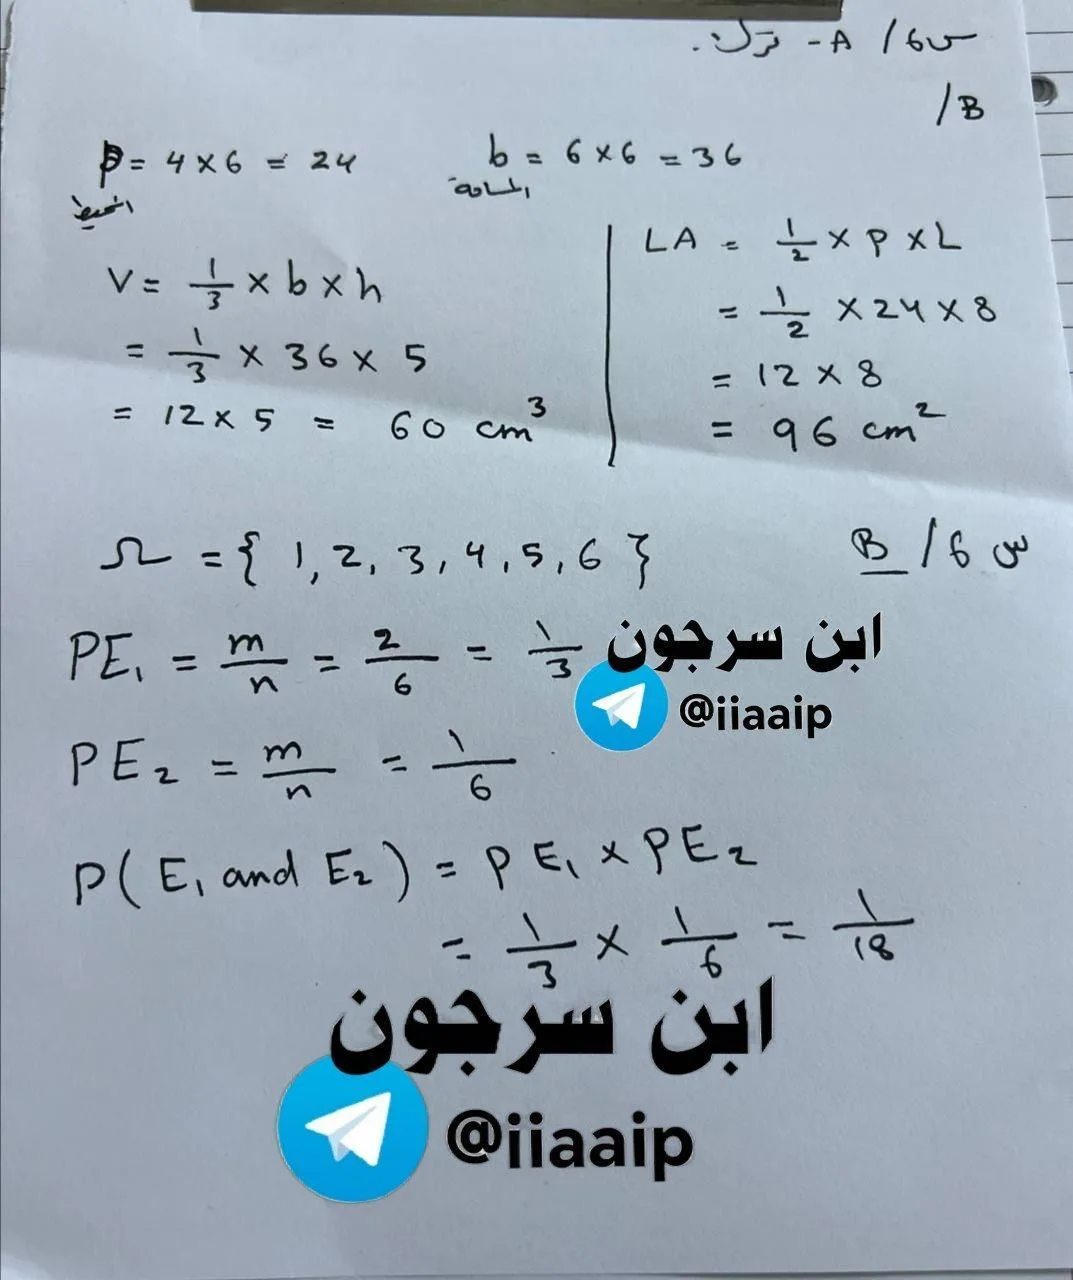 س6/ A - ترك.
B/
P = 4 × 6 = 24
المحيط
b = 6 × 6 = 36
المساحة
V = 1/3 × b × h
= 1/3 × 36 × 5
= 12 × 5 = 60 cm³
LA = 1/2 × P × L
= 1/2 × 24 × 8
= 12 × 8
= 96 cm²
س 6/ B
Ω = { 1, 2, 3, 4, 5, 6 }
PE₁ = m/n = 2/6 = 1/3
ابن سرجون
@iiaaip
PE₂ = m/n = 1/6
P( E₁ and E₂ ) = PE₁ × PE₂
= 1/3 × 1/6 = 1/18
ابن سرجون
@iiaaip